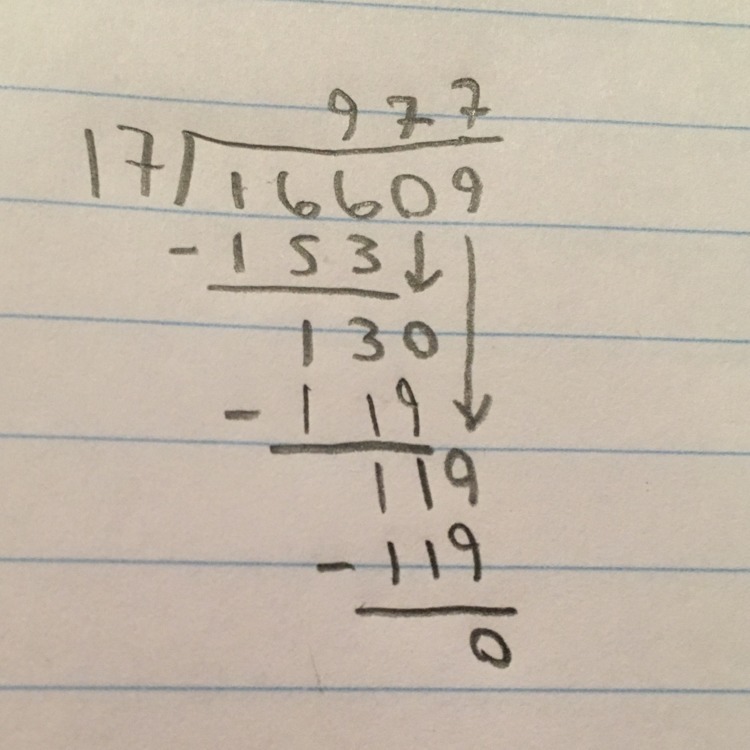 977
17)16609
-153↓
130
-119
119
-119
0